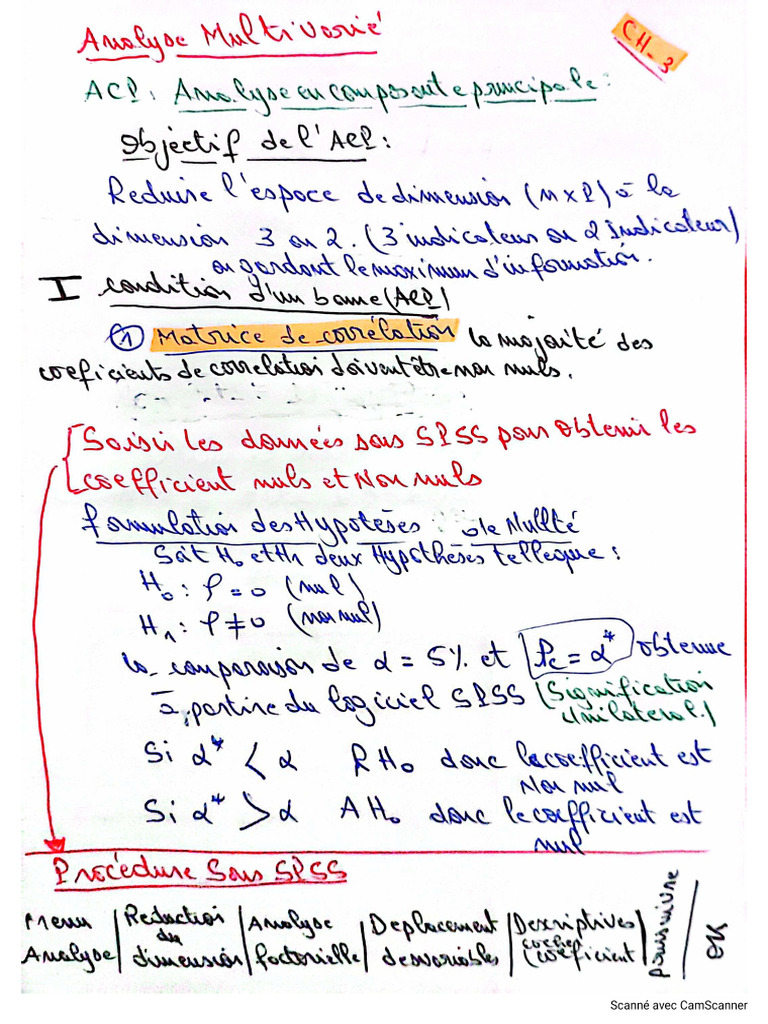 Analyse Multivarié
CH_3
ACP: Analyse en composante principale:
Objectif de l'ACP:
Reduire l'espace de dimension (n x P) à la
dimension 3 ou 2. (3 indicateur ou 2 Indicateur)
en gardant le maximum d'information.
I condition d'un bonne (ACP)
① Matrice de corrélation la majorité des
coeficients de correlation doivent être non nuls.
Saisir les données sous SPSS pour obtenir les
coefficient nuls et Non nuls
formulation des Hypotèses: de Nullté
Soit H₀ et H₁ deux Hypothèses telleque:
H₀: ρ = 0 (nul)
H₁: ρ ≠ 0 (non nul)
la comparaison de α = 5% et Pc = α* obtenue
à partire du logiciel SPSS (Signification
Unilateral.)
Si α* < α RH₀ donc le coefficient est
Non nul
Si α* > α AH₀ donc le coefficient est
nul
Procédure Sous SPSS
Menu Analyse / Reduction du dimension / Analyse factorielle / Deplacement des variables / Descriptives coche (coeficient / poursuivre / OK
Scanné avec CamScanner